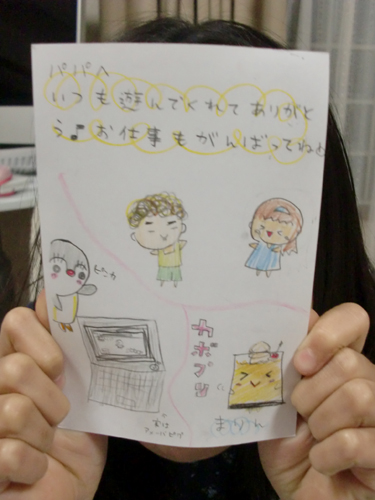 パパへ
いつも遊んでくれてありがと
う♪お仕事もがんばってねo
カボプリ
まりん